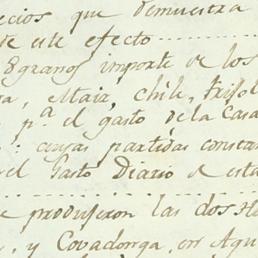 ecios que demuestra
este efecto
8 granos importe de los
a, Maiz, chile, frisol
p.ª el gasto de la Casa
cuyas partidas constan
el Gasto Diario de esta
e produjeron las dos Ha
, y Covadonga, en Agu